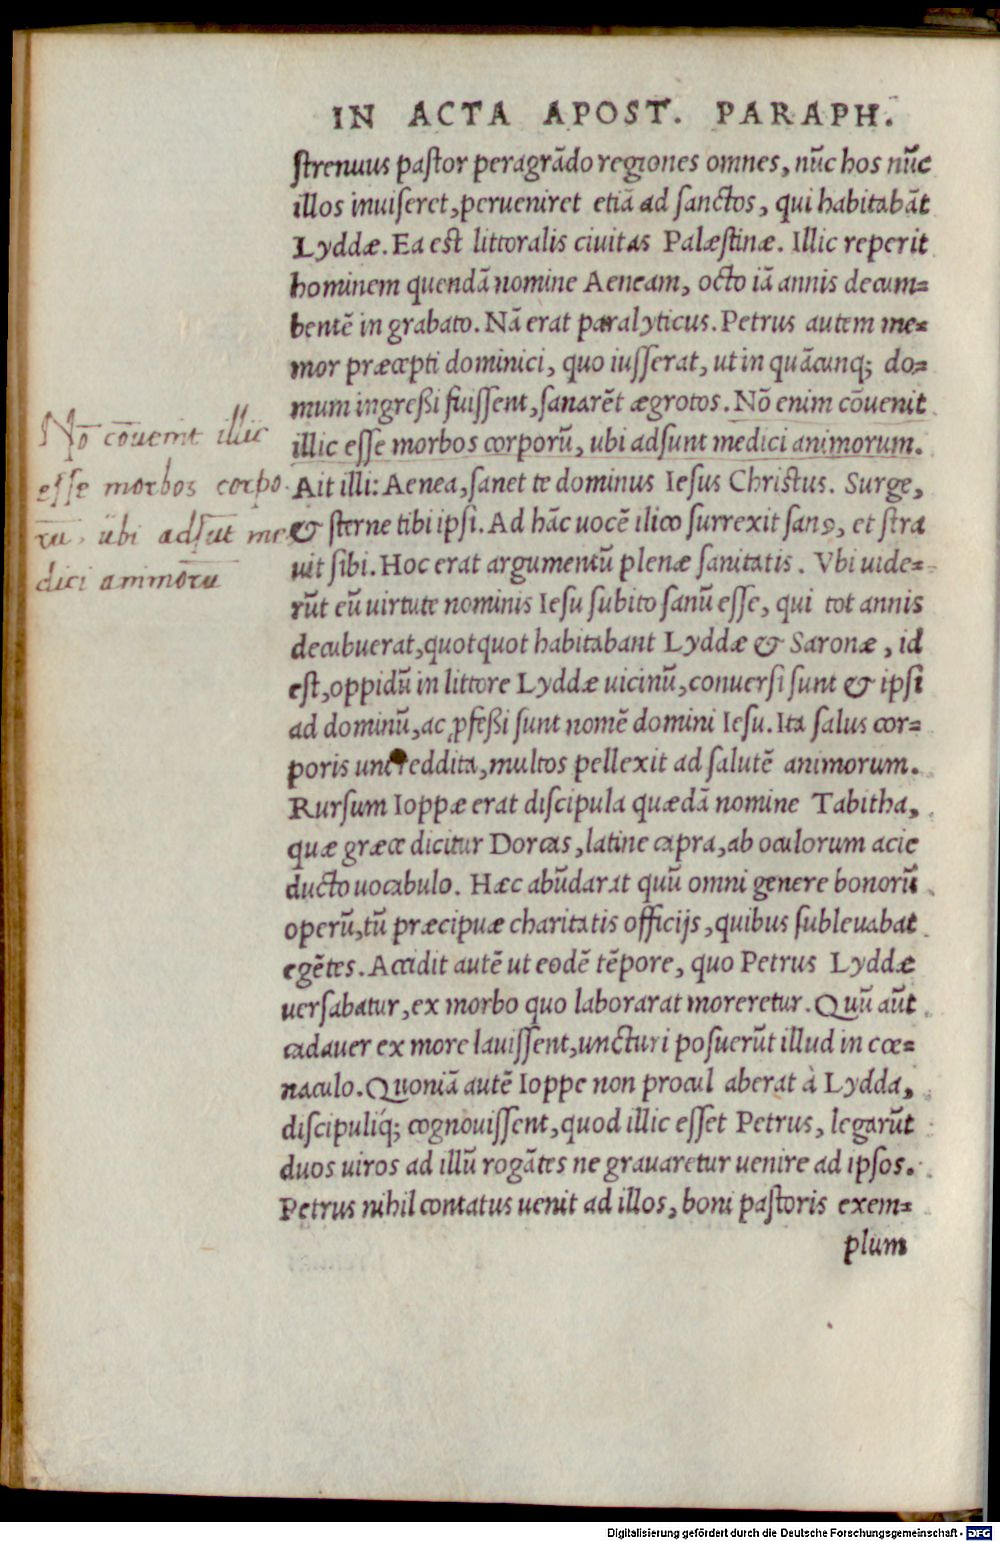 IN ACTA APOST. PARAPH.
ſtrenuus paſtor peragrādo regiones omnes, nūc hos nūc
illos inuiſeret, perueniret etiā ad ſanctos, qui habitabāt
Lyddæ. Ea eſt littoralis ciuitas Palæſtinæ. Illic reperit
hominem quendā nomine Aeneam, octo iā annis decum=
bentē in grabato. Nā erat paralyticus. Petrus autem me=
mor præcepti dominici, quo iuſſerat, ut in quācunq; do=
mum ingreßi fuiſſent, ſanarēt ægrotos. Nō enim cōuenit
illic eſſe morbos corporū, ubi adſunt medici animorum.
Ait illi: Aenea, ſanet te dominus Ieſus Chriſtus. Surge,
& ſterne tibi ipſi. Ad hāc uocē ilico ſurrexit ſanꝰ, et ſtra
uit ſibi. Hoc erat argumentū plenæ ſanitatis. Vbi uide=
rūt eū uirtute nominis Ieſu ſubito ſanū eſſe, qui tot annis
decubuerat, quotquot habitabant Lyddæ & Saronæ, id
eſt, oppidū in littore Lyddæ uicinū, conuerſi ſunt & ipſi
ad dominū, ac ꝓfeßi ſunt nomē domini Ieſu. Ita ſalus cor=
poris uni reddita, multos pellexit ad ſalutē animorum.
Rurſum Ioppæ erat diſcipula quædā nomine Tabitha,
quæ græce dicitur Dorcas, latine capra, ab oculorum acie
ducto uocabulo. Hæc abūdarat quū omni genere bonorū
operū, tū præcipuæ charitatis officijs, quibus ſubleuabat
egētes. Accidit autē ut eodē tēpore, quo Petrus Lyddæ
uerſabatur, ex morbo quo laborarat moreretur. Quū aūt
cadauer ex more lauiſſent, uncturi poſuerūt illud in cœ=
naculo. Quoniā autē Ioppe non procul aberat à Lydda,
diſcipuliq́; cognouiſſent, quod illic eſſet Petrus, legarūt
duos uiros ad illū rogātes ne grauaretur uenire ad ipſos.
Petrus nihil contatus uenit ad illos, boni paſtoris exem=
plum
Nō cōuenit illic
eſſe morbos corpo
rū, ubi adſūt me
dici animorū
Digitalisierung gefördert durch die Deutsche Forschungsgemeinschaft - DFG